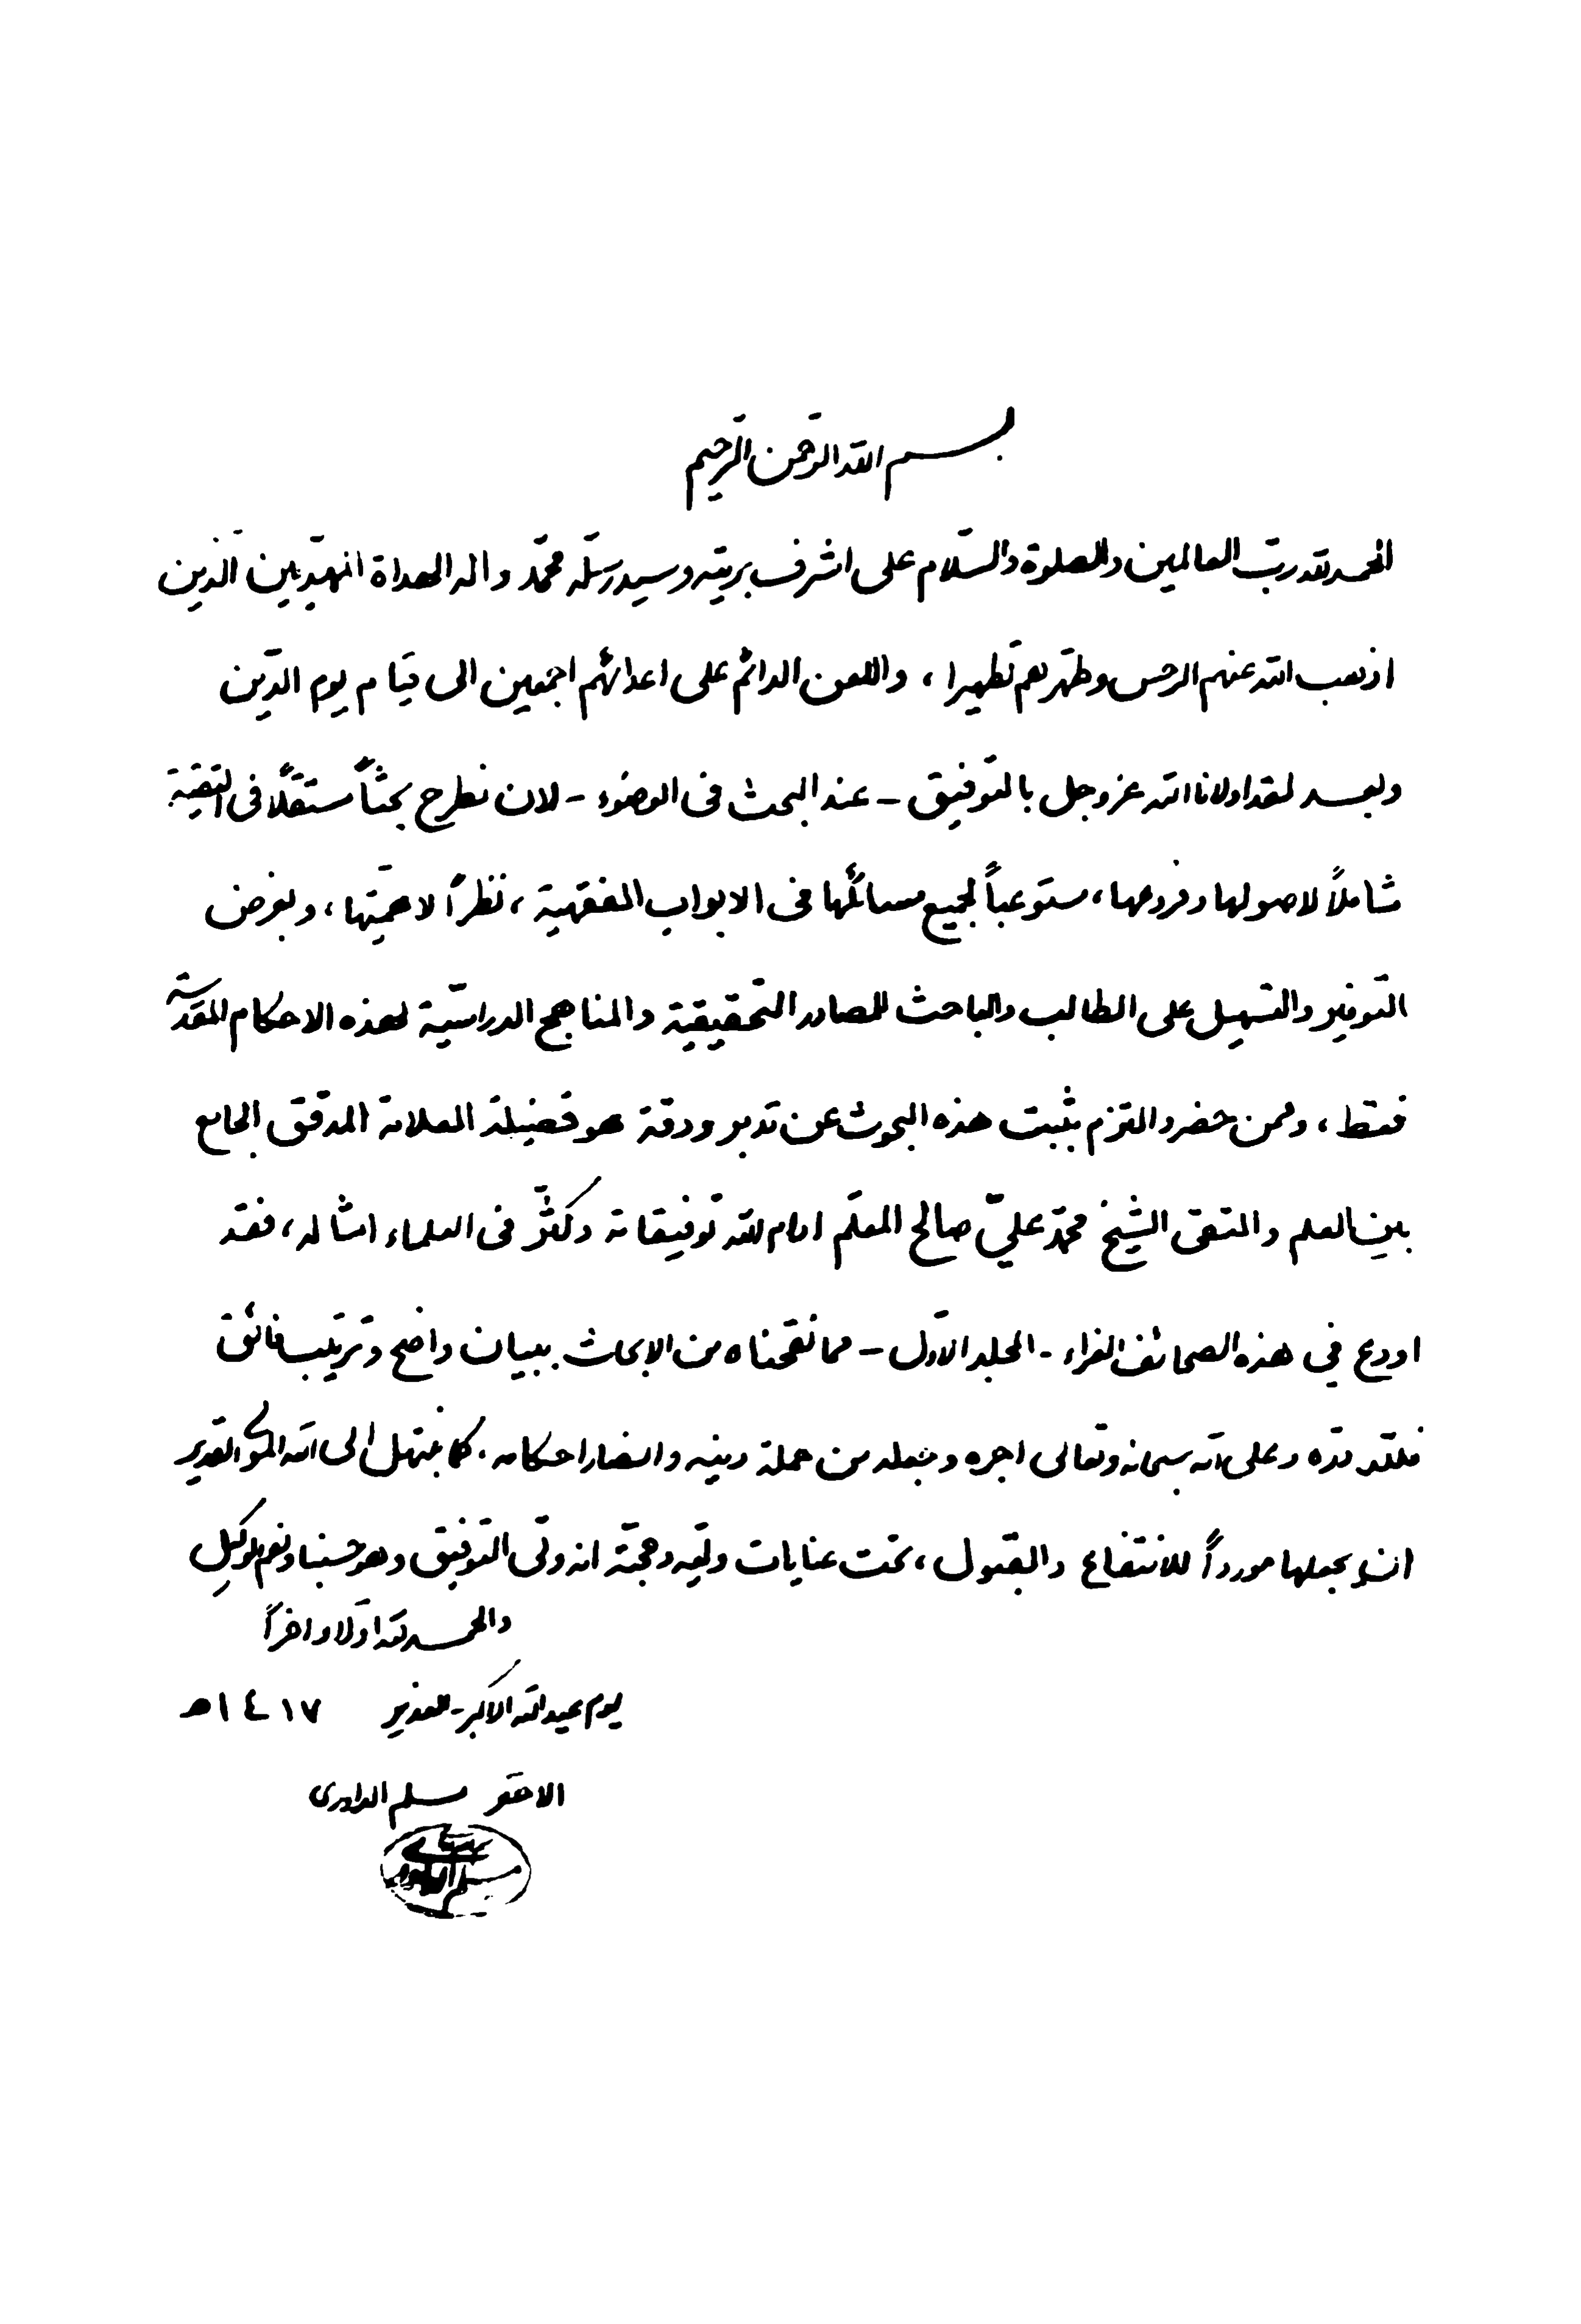 بسم الله الرحمن الرحيم
الحمد لله رب العالمين والصلوة والسّلام على اشرف بريته وسيد رسله محمّد واله الهداة المهديّين الّذين
اذهب الله عنهم الرجس وطهرهم تطهيرا ، واللعن الدائم على اعدائهم اجمعين الى قيام يوم الدّين
وبعد لقد اولانا الله عز وجل بالتوفيق - عند البحث فى الوضوء - لان نطرح بحثاً مستقلاً فى التقيّة
شاملاً لاصولها وفروعها ، مستوعباً لجميع مسائلها فى الابواب الفقهية ، نظراً لاهميّتها ، وبغرض
التوفير والتسهيل على الطالب والباحث للمصادر التحقيقية والمناهج الدراسيّة لهذه الاحكام المقدّسة
فقط ، وممن حضر والتزم بثبت هذه البحوث عن تدبر ودقة هو فضيلة العلامة المدقق الجامع
بين العلم والتقى الشيخ محمّد عليّ صالح المعلّم ادام الله توفيقاته وكثّر فى العلماء امثاله ، فقد
اودع في هذه الصحائف الغراء - المجلد الاوّل - مما نقحناه من الابحاث ببيان واضح وترتيب فائق
فلله درّه وعلى الله سبحانه وتعالى اجره وجعله من حملة دينه وانصار احكامه . كما نبتهل الى الله المولى القدير
ان يجعلها مورداً للانتفاع والقبول ، تحت عنايات وليّه وحجته انه ولىّ التوفيق وهو حسبنا ونعم الوكيل
والحمد لله اوّلا واخراً
يوم عيد الله الاكبر - الغدير ١٤١٧ هـ
الاحقر مسلم الداورى
مسلم الداوري